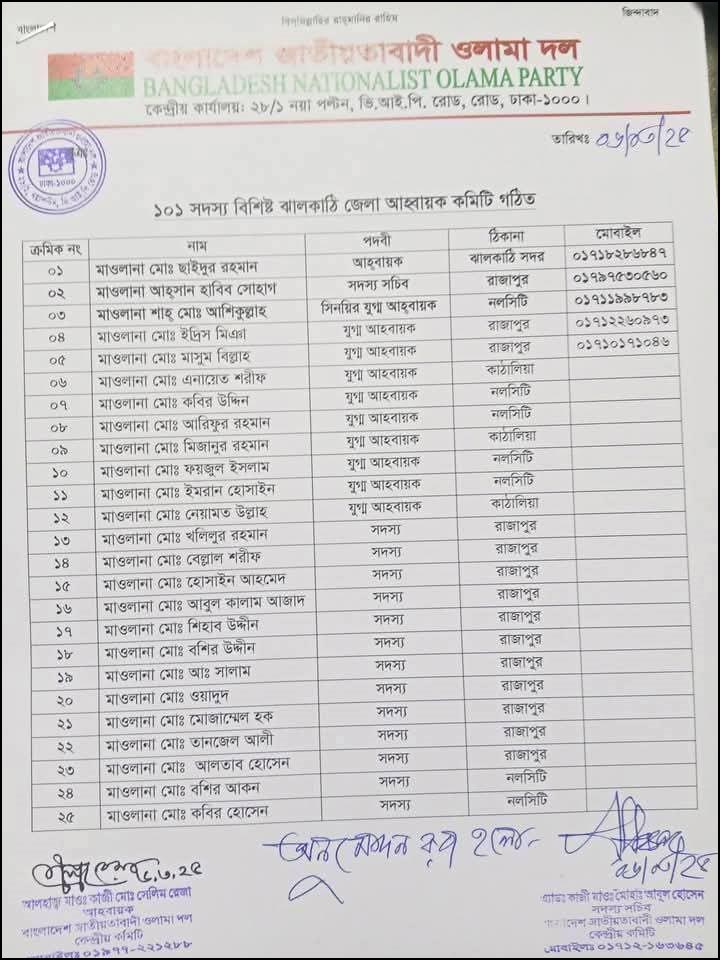 বিসমিল্লাহির রাহমানির রাহিম
জিন্দাবাদ
বাংলাদেশ জাতীয়তাবাদী ওলামা দল
BANGLADESH NATIONALIST OLAMA PARTY
কেন্দ্রীয় কার্যালয়: ২৮/১ নয়া পল্টন, ভি.আই.পি. রোড, রোড, ঢাকা-১০০০।
তারিখঃ ০৬/০৩/২৫
ঢাকা-১০০০
১০১ সদস্য বিশিষ্ট ঝালকাঠি জেলা আহবায়ক কমিটি গঠিত
ক্রমিক নং নাম পদবী ঠিকানা মোবাইল
০১ মাওলানা মোঃ ছাইদুর রহমান আহবায়ক ঝালকাঠি সদর ০১৭১৮২৮৬৮৪৭
০২ মাওলানা আহ্সান হাবিব সোহাগ সদস্য সচিব রাজাপুর ০১৭৯৭৫৩০৫৬০
০৩ মাওলানা শাহ্ মোঃ আশিকুল্লাহ সিনয়ির যুগ্ম আহবায়ক নলসিটি ০১৭১১৯৯৮৭৮৩
০৪ মাওলানা মোঃ ইদ্রিস মিঞা যুগ্ম আহবায়ক রাজাপুর ০১৭১২২৬০৯৭৩
০৫ মাওলানা মোঃ মাসুম বিল্লাহ যুগ্ম আহবায়ক রাজাপুর ০১৭১০১৭১০৪৬
০৬ মাওলানা মোঃ এনায়েত শরীফ যুগ্ম আহবায়ক কাঠালিয়া
০৭ মাওলানা মোঃ কবির উদ্দিন যুগ্ম আহবায়ক নলসিটি
০৮ মাওলানা মোঃ আরিফুর রহমান যুগ্ম আহবায়ক নলসিটি
০৯ মাওলানা মোঃ মিজানুর রহমান যুগ্ম আহবায়ক কাঠালিয়া
১০ মাওলানা মোঃ ফয়জুল ইসলাম যুগ্ম আহবায়ক নলসিটি
১১ মাওলানা মোঃ ইমরান হোসাইন যুগ্ম আহবায়ক নলসিটি
১২ মাওলানা মোঃ নেয়ামত উল্লাহ যুগ্ম আহবায়ক কাঠালিয়া
১৩ মাওলানা মোঃ খলিলুর রহমান সদস্য রাজাপুর
১৪ মাওলানা মোঃ বেল্লাল শরীফ সদস্য রাজাপুর
১৫ মাওলানা মোঃ হোসাইন আহমেদ সদস্য রাজাপুর
১৬ মাওলানা মোঃ আবুল কালাম আজাদ সদস্য রাজাপুর
১৭ মাওলানা মোঃ শিহাব উদ্দীন সদস্য রাজাপুর
১৮ মাওলানা মোঃ বশির উদ্দীন সদস্য রাজাপুর
১৯ মাওলানা মোঃ আঃ সালাম সদস্য রাজাপুর
২০ মাওলানা মোঃ ওয়াদুদ সদস্য রাজাপুর
২১ মাওলানা মোঃ মোজাম্মেল হক সদস্য রাজাপুর
২২ মাওলানা মোঃ তানজেল আলী সদস্য রাজাপুর
২৩ মাওলানা মোঃ আলতাব হোসেন সদস্য রাজাপুর
২৪ মাওলানা মোঃ বশির আকন সদস্য নলসিটি
২৫ মাওলানা মোঃ কবির হোসেন সদস্য নলসিটি
অনুমোদন করা হলো-
৬.৩.২৫
০৬/০৩/২৫
আলহাজ্ব মাওঃ কাজী মোঃ সেলিম রেজা
আহবায়ক
বাংলাদেশ জাতীয়তাবাদী ওলামা দল
কেন্দ্রীয় কমিটি
মোবাইলঃ ০১৯৭৭-২২১২৮৮
এ্যাডঃ কাজী মাওঃ মোহাঃ আবুল হোসেন
সদস্য সচিব
বাংলাদেশ জাতীয়তাবাদী ওলামা দল
কেন্দ্রীয় কমিটি
মোবাইলঃ ০১৭১২-১৬৩৬৪৫